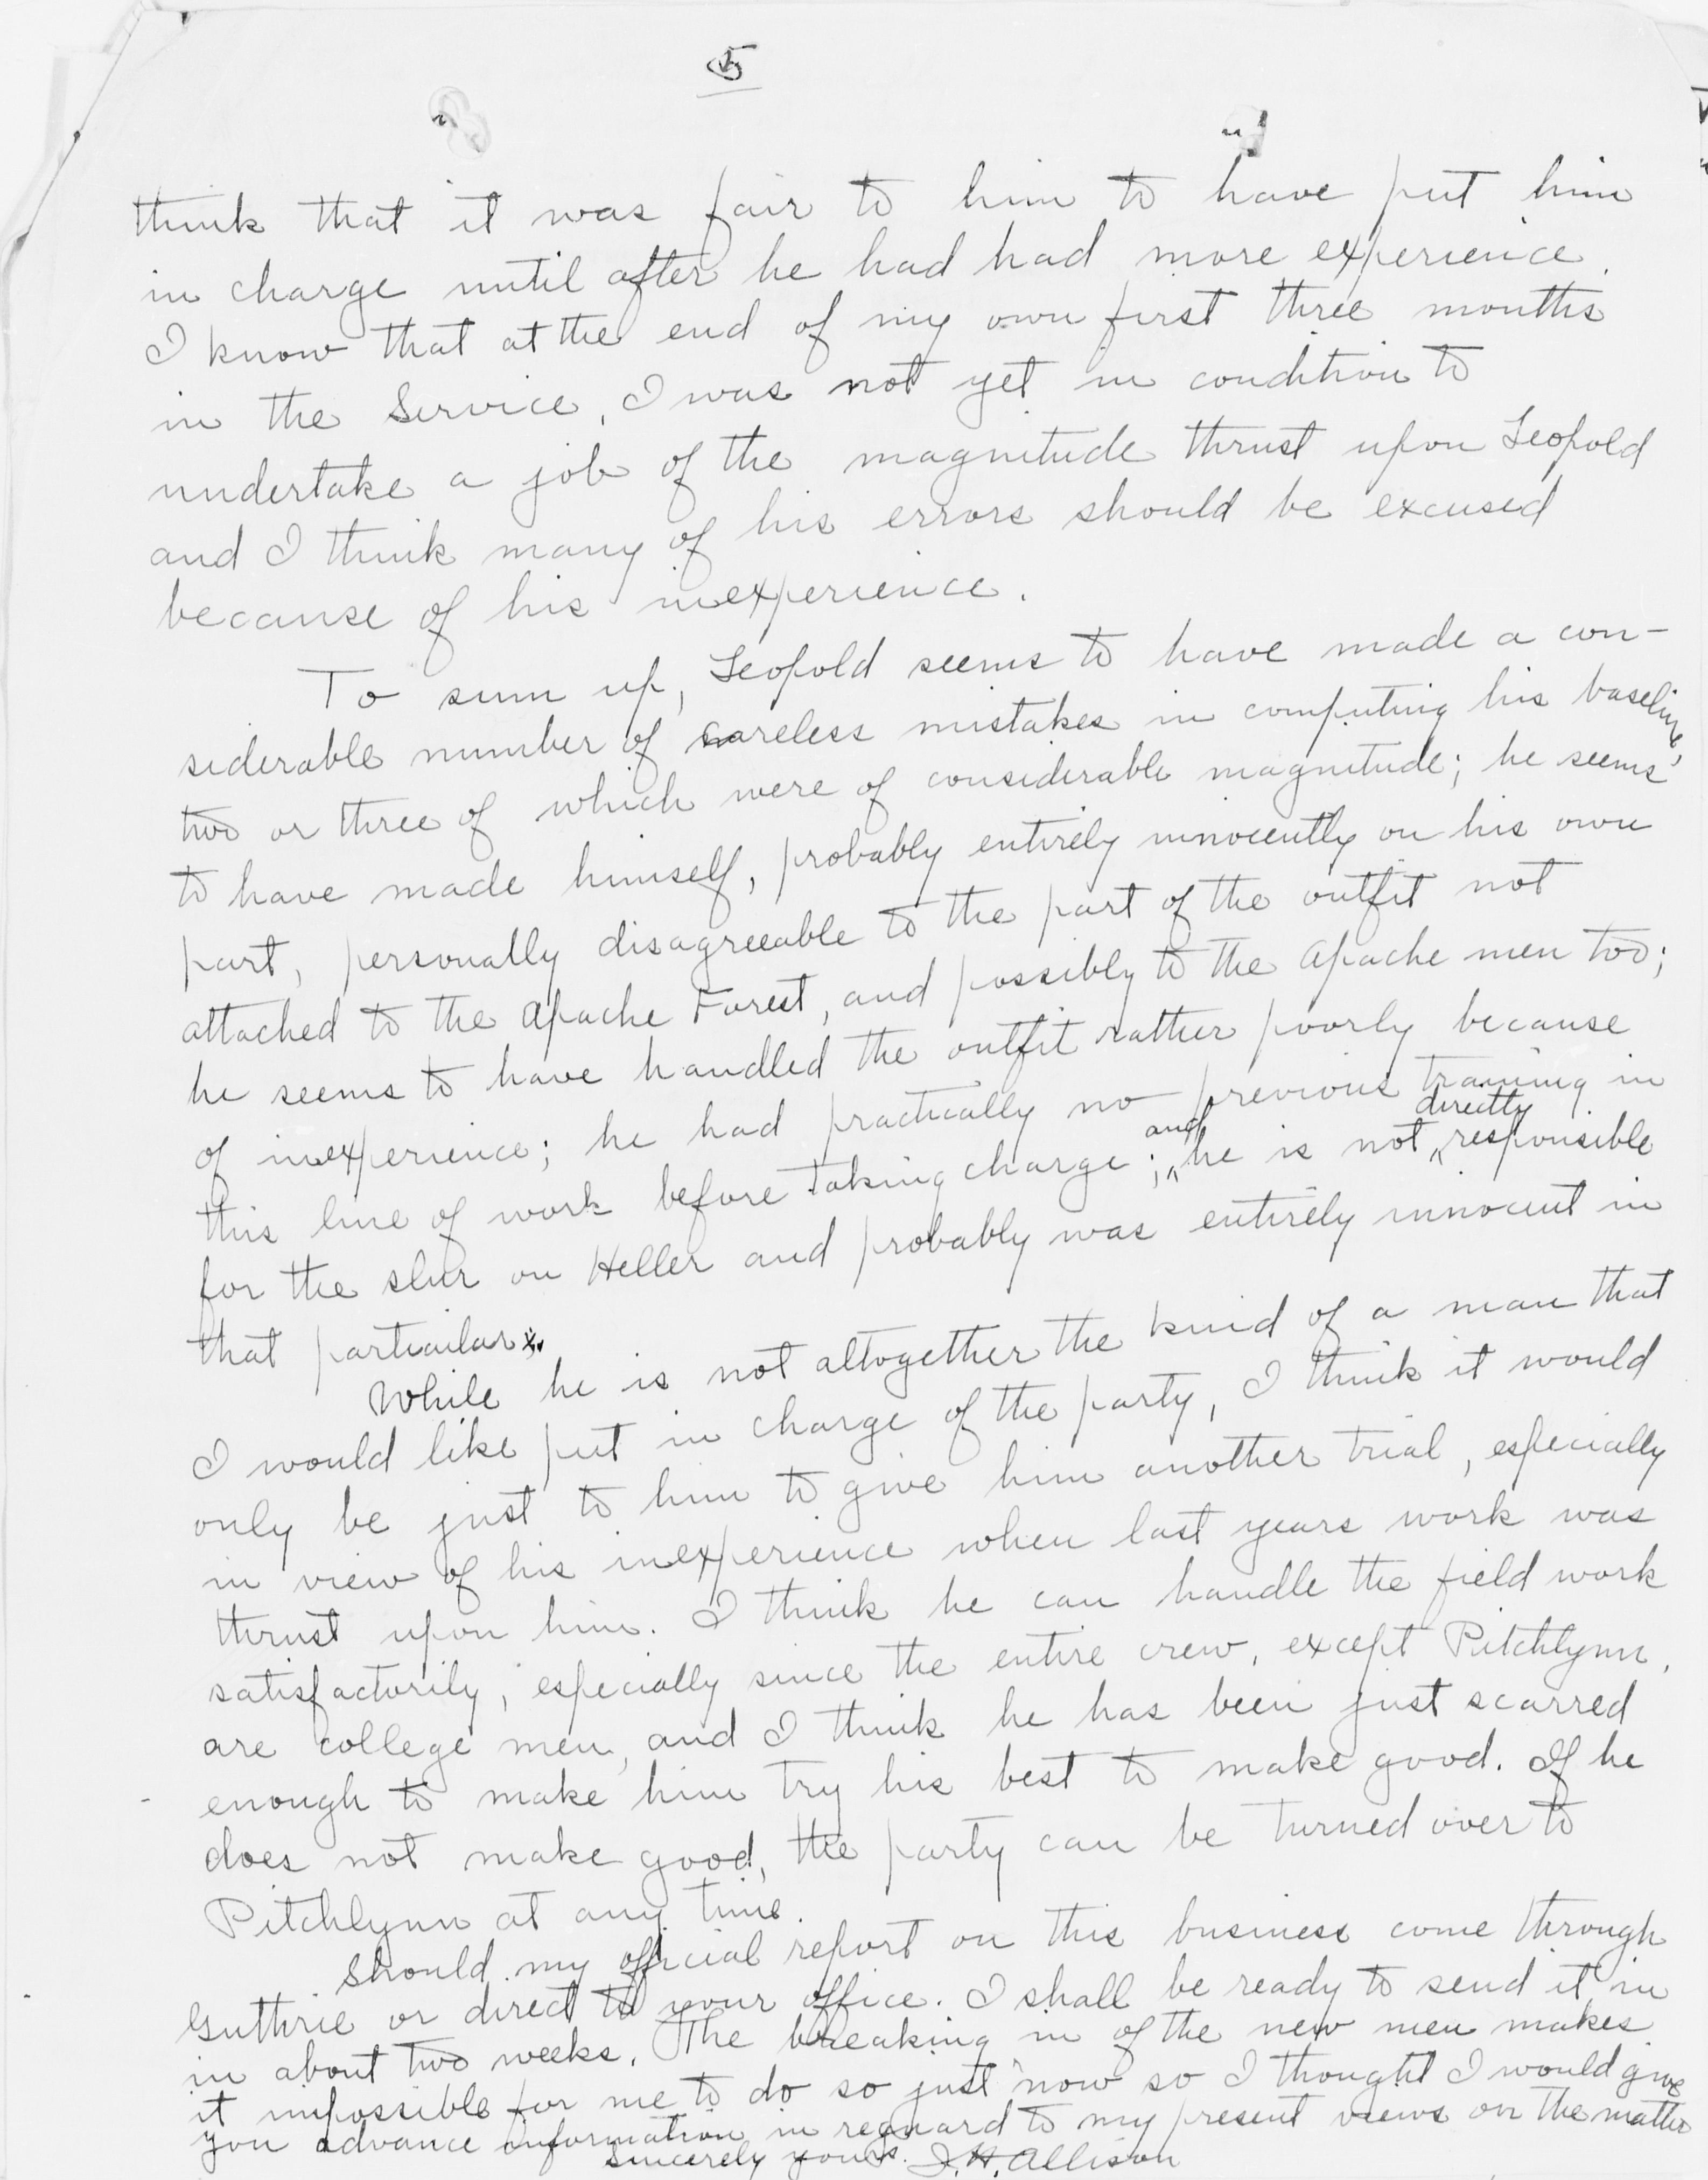 5
think that it was fair to him to have put him
in charge until after he had had more experience.
I know that at the end of my own first three months
in the Service, I was not yet in condition to
undertake a job of the magnitude thrust upon Leopold
and I think many of his errors should be excused
because of his inexperience.
To sum up, Leopold seems to have made a con-
siderable number of careless mistakes in computing his baseline,
two or three of which were of considerable magnitude; he seems
to have made himself, probably entirely innocently on his own
part, personally disagreeable to the part of the outfit not
attached to the Apache Forest, and possibly to the Apache men too;
he seems to have handled the outfit rather poorly because
of inexperience; he had practically no previous training in
this line of work before taking charge; and he is not directly responsible
for the slur on Heller and probably was entirely innocent in
that particular.
While he is not altogether the kind of a man that
I would like put in charge of the party, I think it would
only be just to him to give him another trial, especially
in view of his inexperience when last years work was
thrust upon him. I think he can handle the field work
satisfactorily, especially since the entire crew, except Pitchlynn,
are college men, and I think he has been just scarred
enough to make him try his best to make good. If he
does not make good, the party can be turned over to
Pitchlynn at any time.
Should my official report on this business come through
Guthrie or direct to your office. I shall be ready to send it in
in about two weeks. The breaking in of the new men makes
it impossible for me to do so just now so I thought I would give
you advance information in reguard to my present views on the matter
Sincerely yours. J. H. Allison